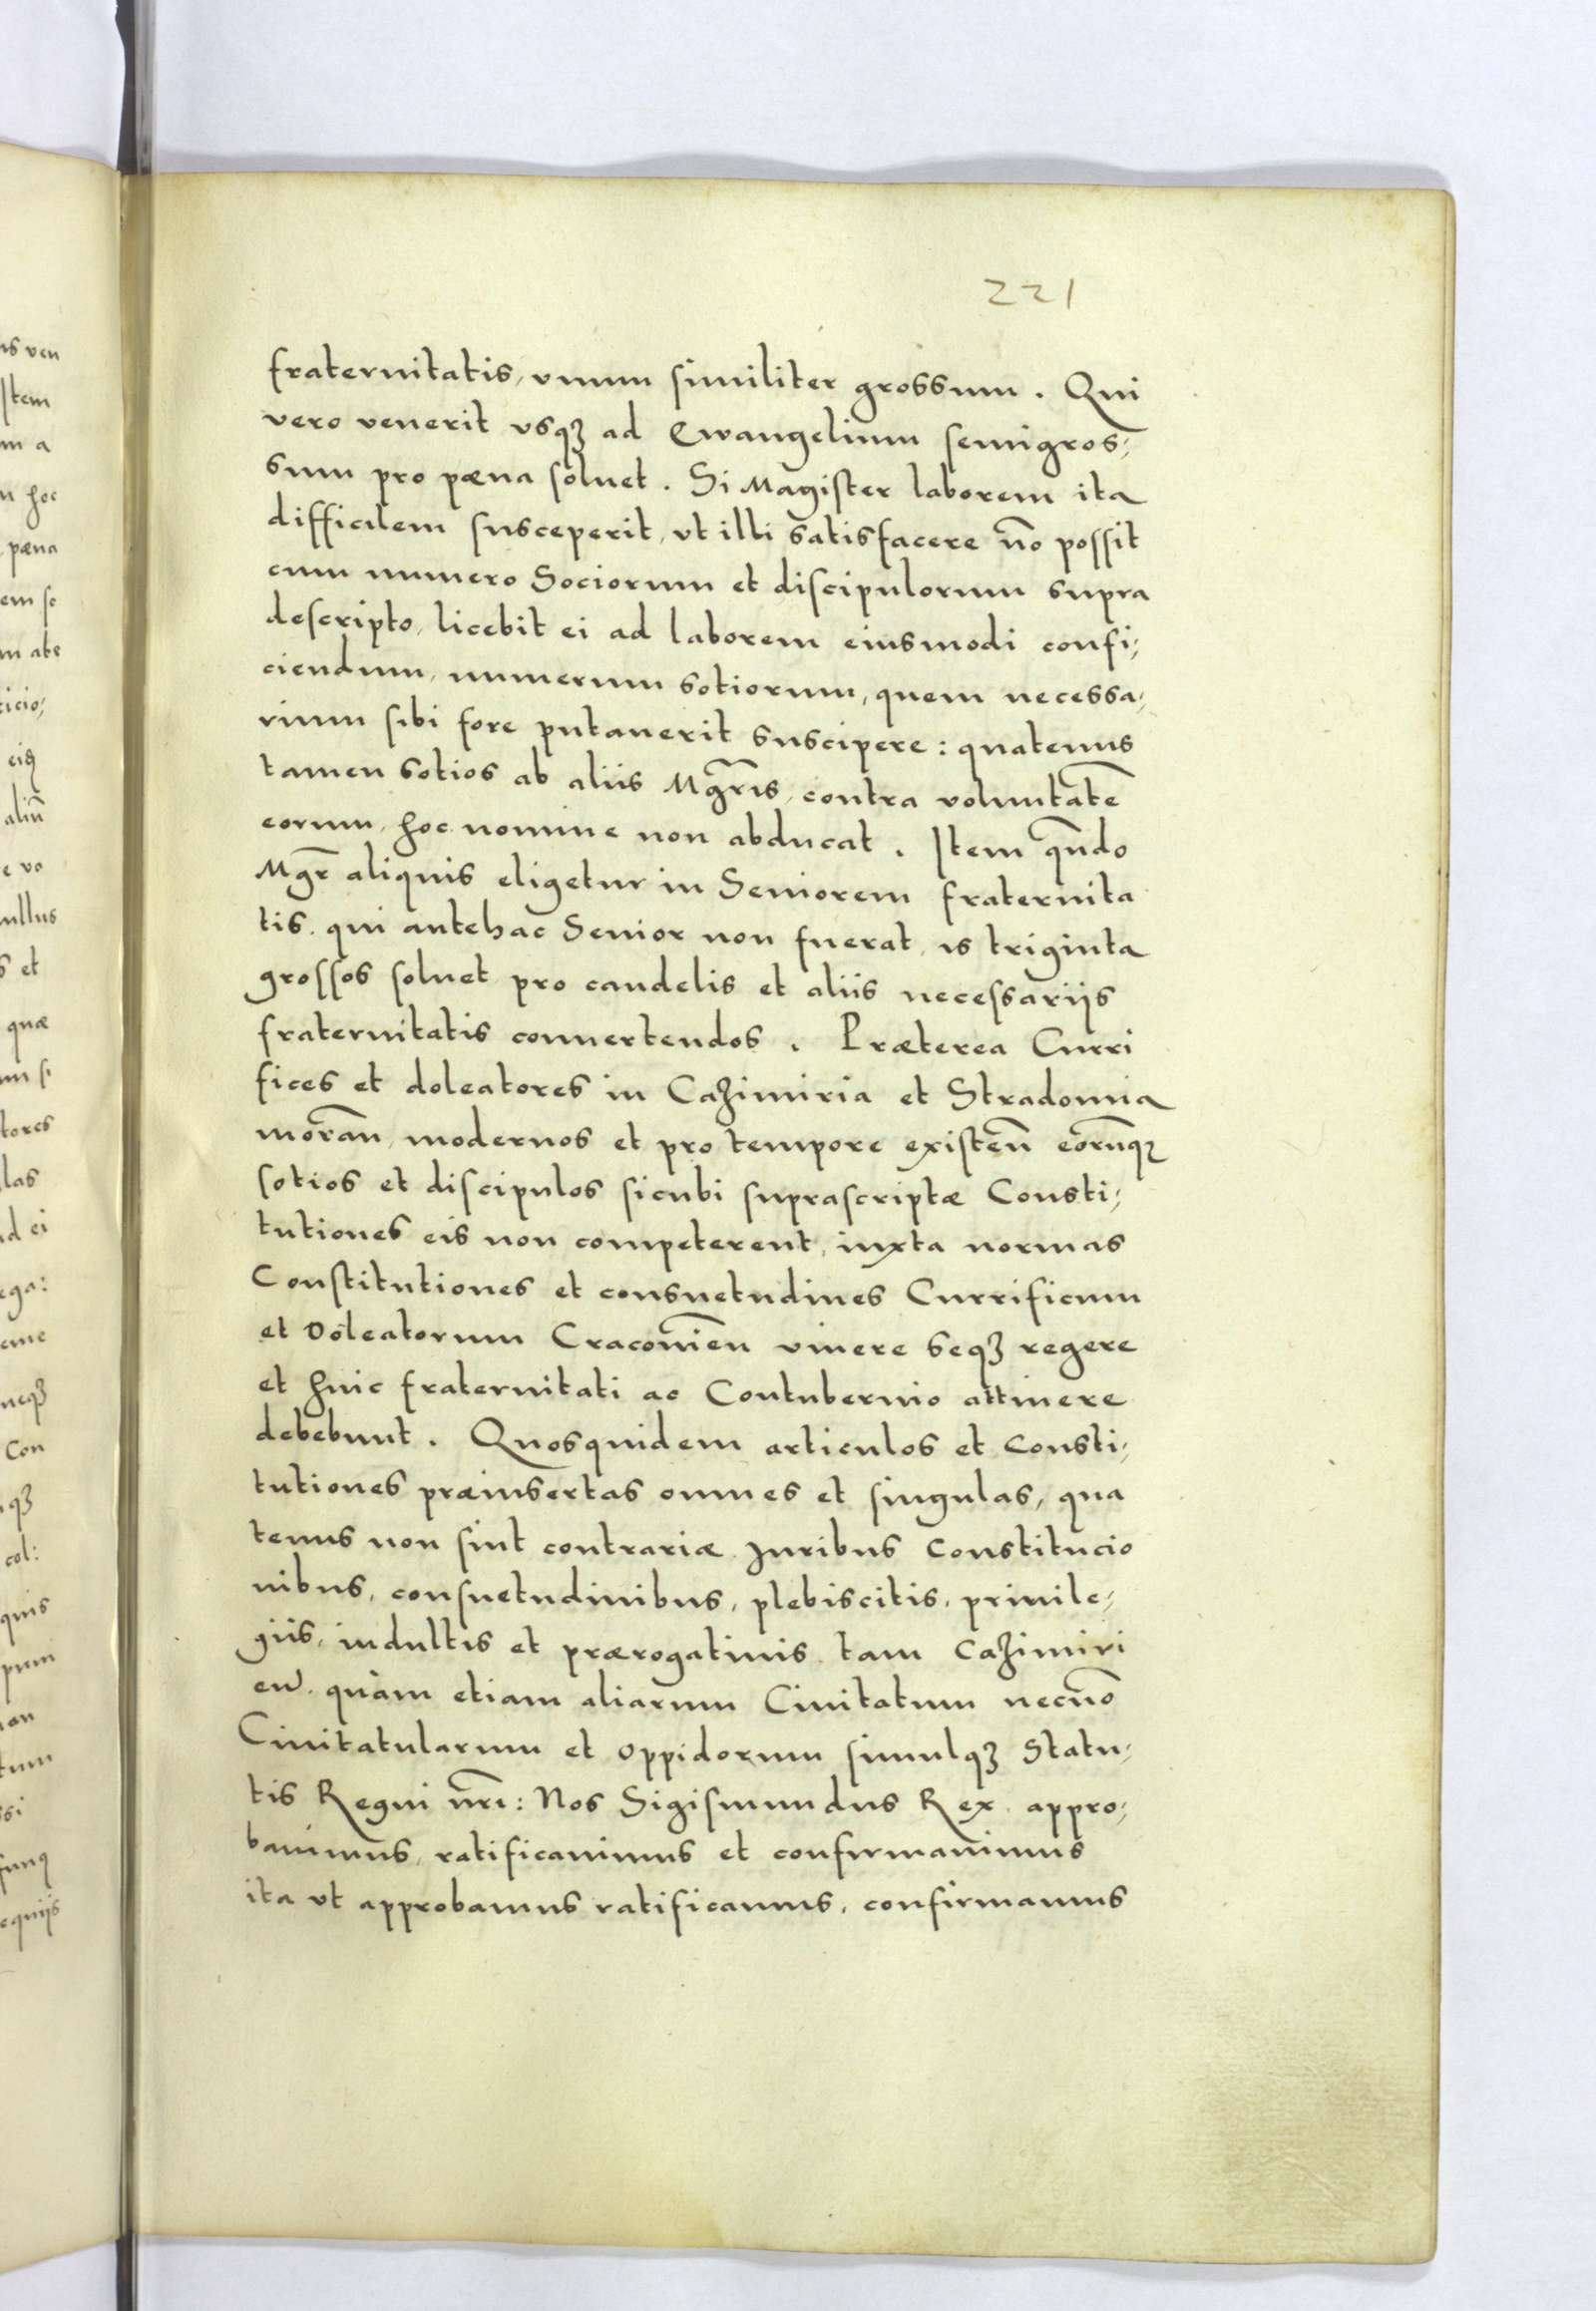 221
fraternitatis, vnum similiter grossum. Qui
vero venerit vsqꝫ ad Ewangelium semigros,
sum pro pæna soluet. Si Magister laborem ita
difficilem susceperit, vt illi satisfacere nō possit
cum numero Sociorum et discipulorum supra
descripto, licebit ei ad laborem eiusmodi confi,
ciendum, numerum sotiorum, quem necessa,
rium sibi fore putauerit suscipere: quatenus
tamen sotios ab aliis Mgr̃is, contra voluntatē
eorum, hoc nomine non abducat. Item qn̄do
Mgr̃ aliquis eligetur in Seniorem fraternita
tis. qui antehac Senior non fuerat, is triginta
grossos soluet pro candelis et aliis necessariis
fraternitatis conuertendos. Præterea Curri
fices et doleatores in Caȝimiria et Stradomia
morān, modernos et pro tempore existēn eorūqꝫ
sotios et discipulos sicubi suprascriptæ Consti,
tutiones eis non competerent, iuxta normas
Constitutiones et consuetudines Currificum
et Doleatorum Cracouieñ viuere seqꝫ regere
et huic fraternitati ac Contubernio attinere
debebunt. Quosquidem articulos et Consti,
tutiones præinsertas omnes et singulas, qua
tenus non sint contrariæ Juribus Constitucio
nibus, consuetudinibus, plebiscitis, priuile,
giis, indultis et prærogatiuis tam Caȝimiri
eñ. quàm etiam aliarum Ciuitatum necnō
Ciuitatularum et oppidorum simulqꝫ Statu,
tis Regni nr̄i: Nos Sigismundus Rex appro,
bauimus, ratificauimus et confirmauimus
ita vt approbamus ratificamus, confirmamus